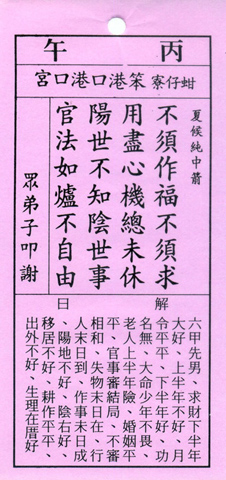 丙午
蚶仔寮 笨港口港口宮
夏候純中箭
不須作福不須求
用盡心機總未休
陽世不知陰世事
官法如爐不自由
眾弟子叩謝
解曰
六甲先男、求財下半年
大好、上半年不好、月
令平平、下半年好、功
名無、大命少年不畏、
老人上半年險、婚姻平
平、官事審結局、不審
相和、失物末日在、行
人末日到、作事未日成
、陽地不好、陰右好、
移居不好、耕作平平、
出外不好、生理在厝好